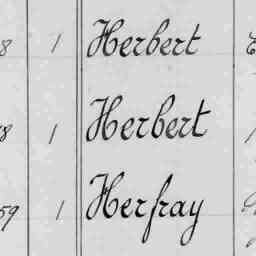 8 1 Herbert
8 1 Herbert
59 1 Herfray